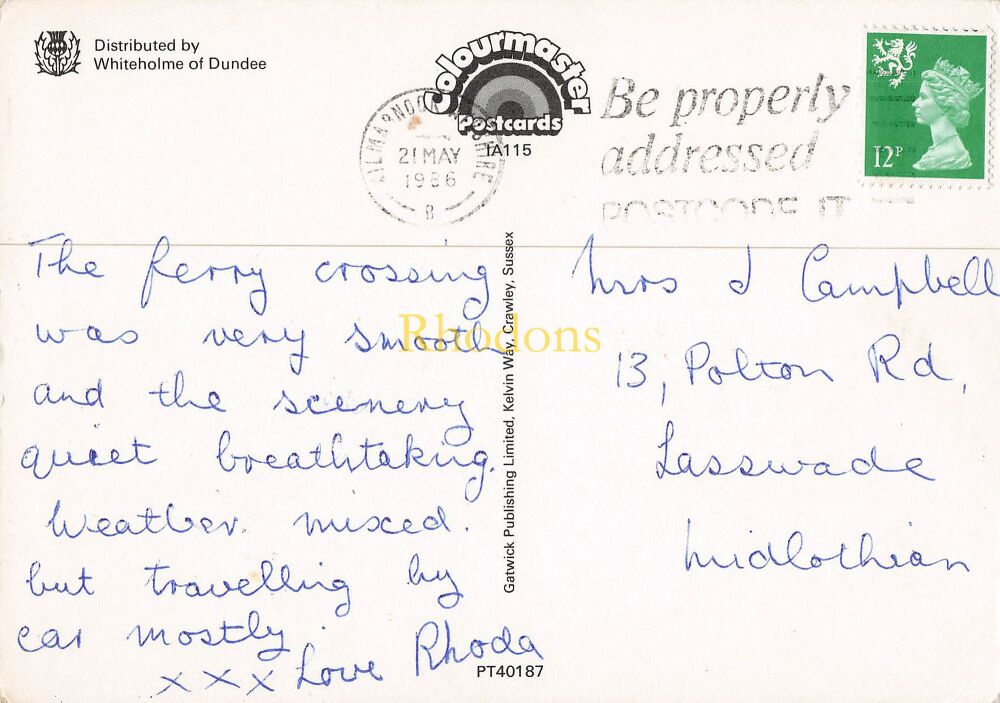 Distributed by
Whiteholme of Dundee
Colourmaster
Postcards
IA115
KILMARNOCK AYRSHIRE
21 MAY
1986
B
Be properly
addressed
POSTCODE IT
12P
The ferry crossing
was very smooth
and the scenery
quiet breathtaking.
Weather mixed.
but travelling by
car mostly.
x x x Love Rhoda
Gatwick Publishing Limited, Kelvin Way, Crawley, Sussex
PT40187
Mrs J Campbell
13, Polton Rd,
Lasswade
Midlothian
Rhodons